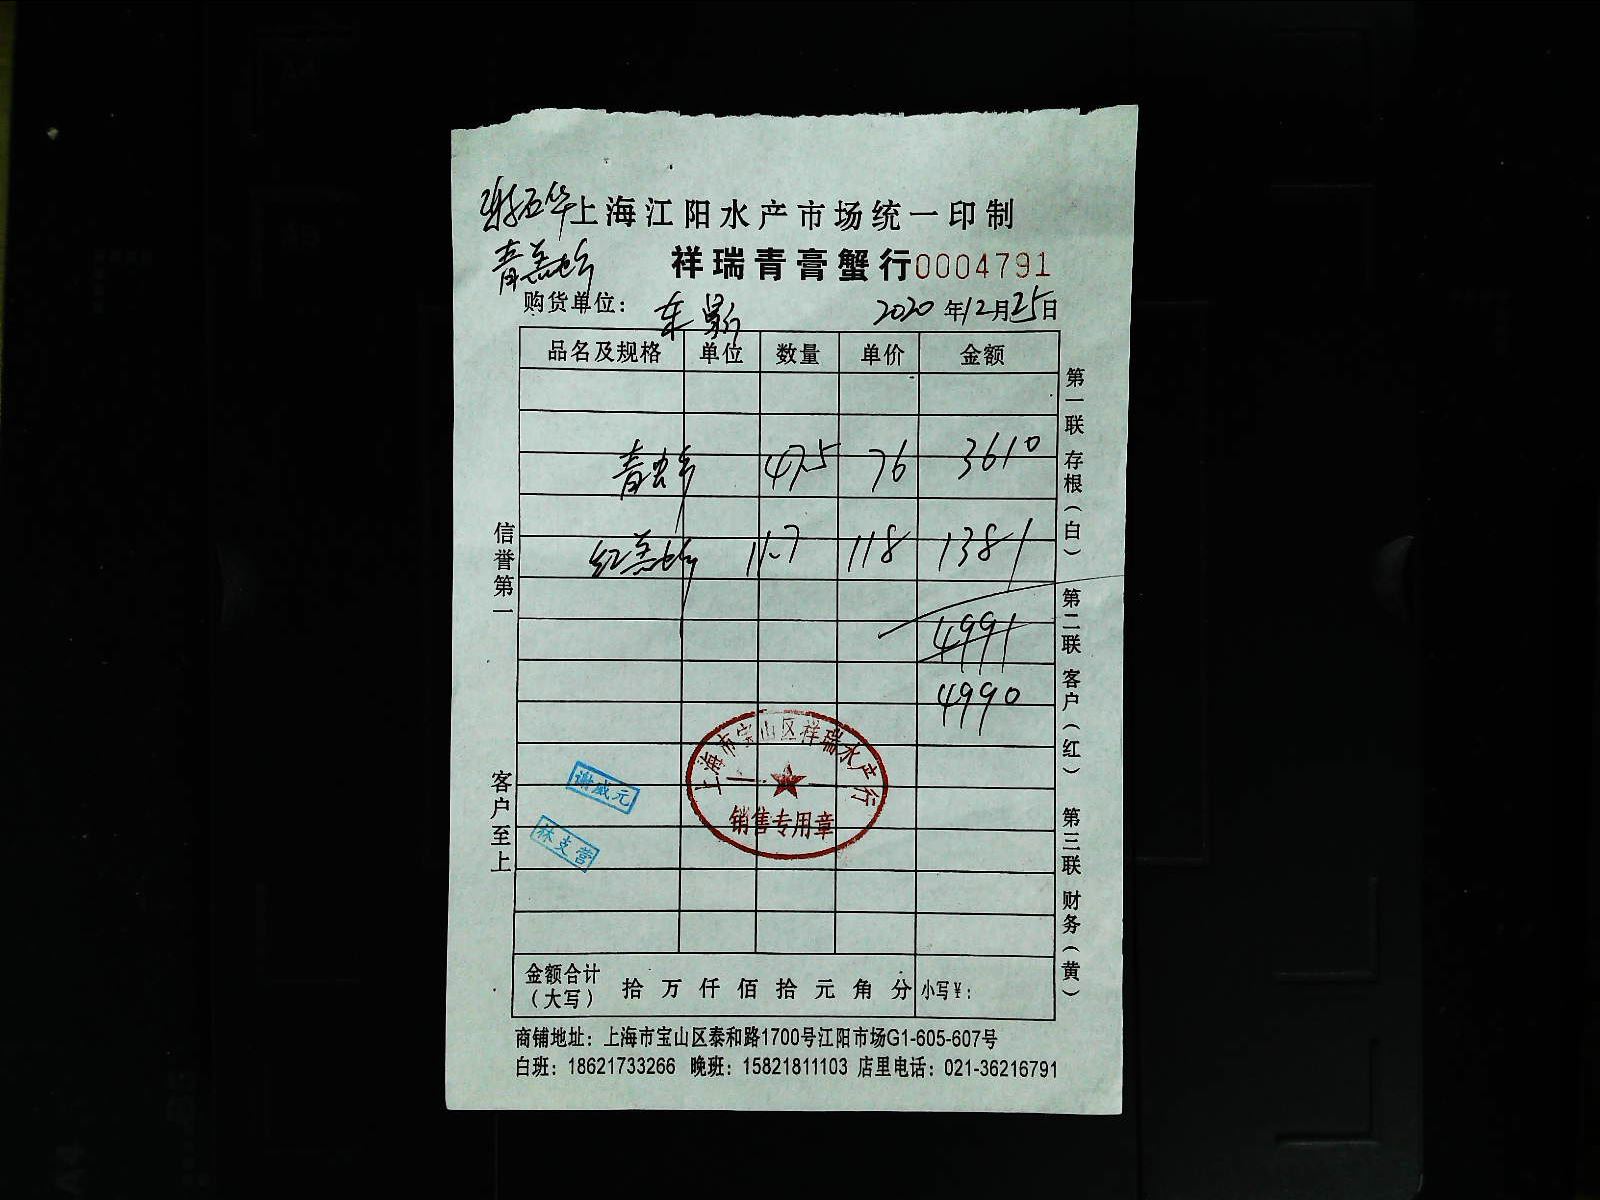 上海江阳水产市场统一印制
祥瑞青膏蟹行0004791
购货单位：
2020年12月25日
品名及规格 单位 数量 单价 金额
47.5 76 3610
11.7 118 1381
4991
4990
信誉第一
客户至上
第一联 存根（白）
第二联 客户（红）
第三联 财务（黄）
上海市宝山区祥瑞水产行
销售专用章
谢威元
林支营
金额合计（大写） 拾 万 仟 佰 拾 元 角 分 小写¥：
商铺地址：上海市宝山区泰和路1700号江阳市场G1-605-607号
白班：18621733266 晚班：15821811103 店里电话：021-36216791